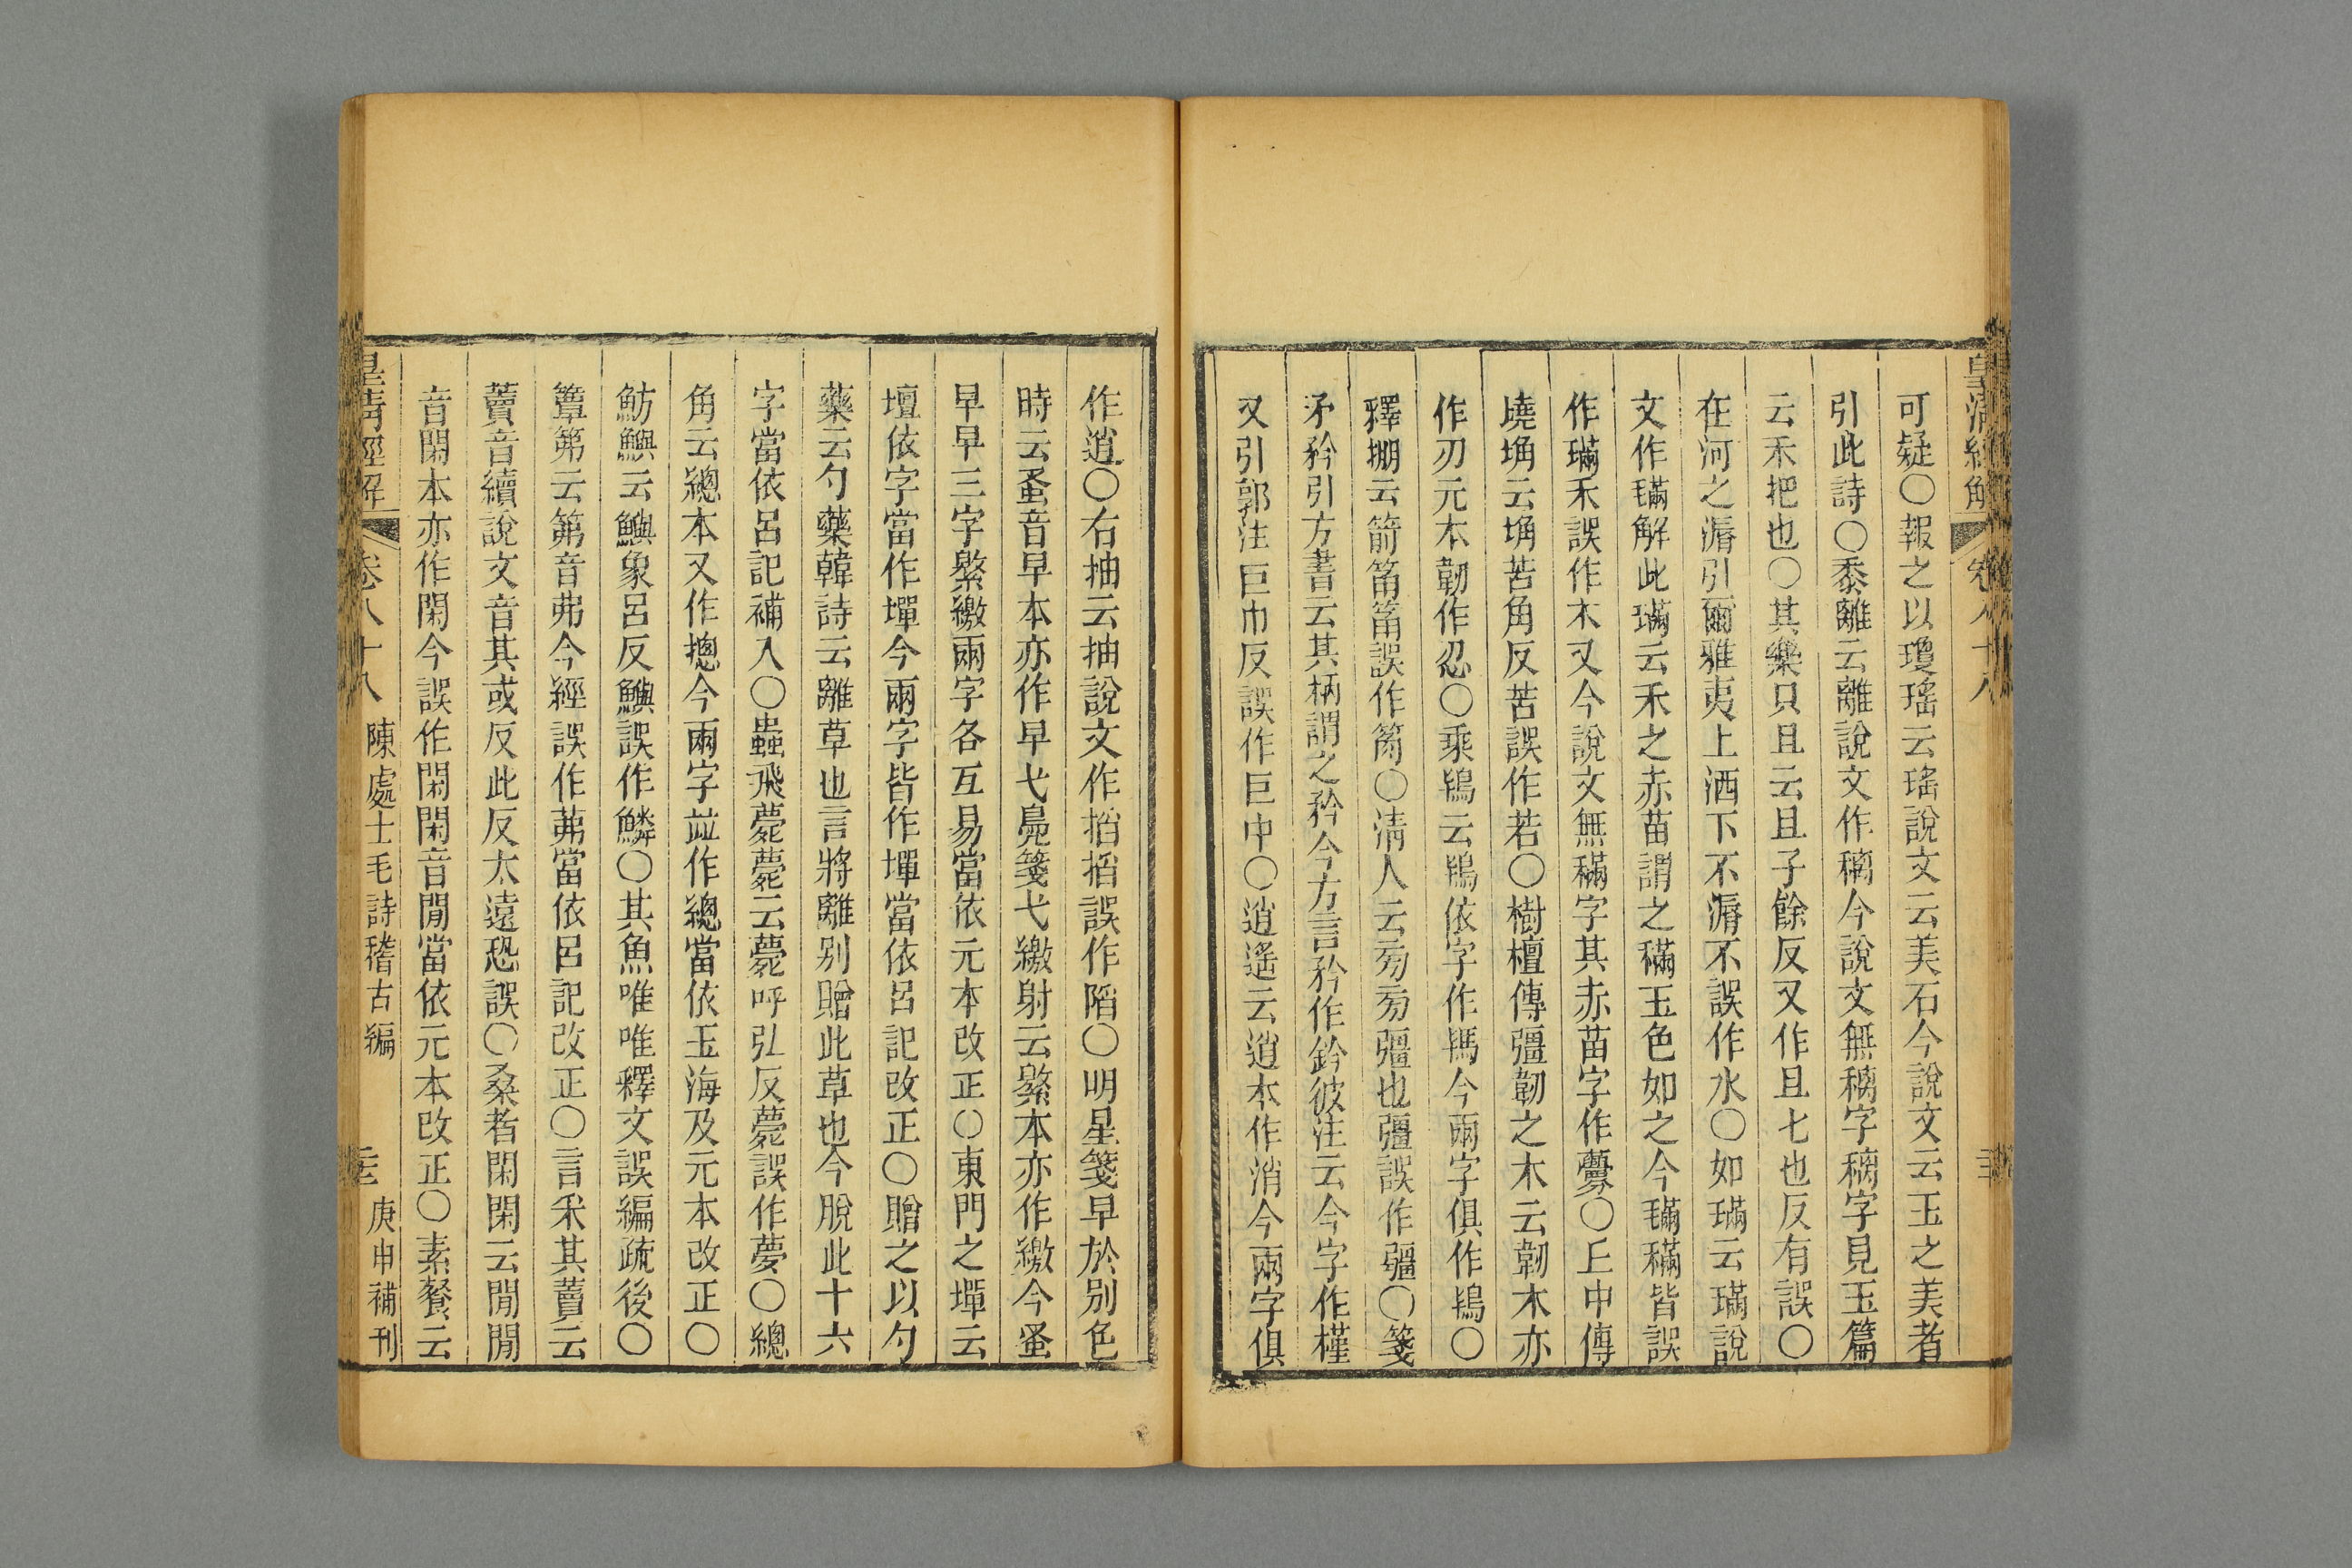 皇清經解 卷八十八
可疑○報之以瓊瑤云瑤說文云美石今說文云玉之美者
引此詩○黍離云離說文作穲今說文無穲字穲字見玉篇
云禾把也○其樂只且云且子餘反又作且七也反有誤○
在河之漘引爾雅夷上洒下不漘不誤作水○如璊云璊說
文作𣯩解此璊云禾之赤苗謂之穈玉色如之今𣯩穈皆誤
作璊禾誤作木又今說文無穈字其赤苗字作虋○丘中傳
墝埆云埆苦角反苦誤作若○樹檀傳彊韌之木云韌木亦
作刃元本韌作忍○乘鴇云鴇依字作䮀今兩字俱作鴇○
釋掤云箭筩筩誤作筒○清人云旁旁彊也彊誤作疆○箋
矛矜引方書云其柄謂之矜今方言矜作䥆彼注云今字作槿
又引郭注巨巾反誤作巨中○逍遙云逍本作消今兩字俱
作逍○右抽云抽說文作搯搯誤作陷○明星箋早於別色
時云蚤音早本亦作早弋鳧箋弋繳射云繁本亦作繳今蚤
早早三字繁繳兩字各互易當依元本改正○東門之墠云
壇依字當作墠今兩字皆作墠當依呂記改正○贈之以勺
藥云勺藥韓詩云離草也言將離別贈此草也今脫此十六
字當依呂記補入○蟲飛薨薨云薨呼弘反薨誤作夢○總
角云總本又作摠今兩字竝作總當依玉海及元本改正○
魴鱮云鱮象呂反鱮誤作鱗○其魚唯唯釋文誤編疏後○
簟笰云笰音弗今經誤作茀當依呂記改正○言采其藚云
藚音續說文音其或反此反太遠恐誤○桑者閑閑云閒閒
音閑本亦作閑今誤作閑閑音閒當依元本改正○素餐云
皇清經解 卷八十八 陳處士毛詩稽古編 庚申補刊